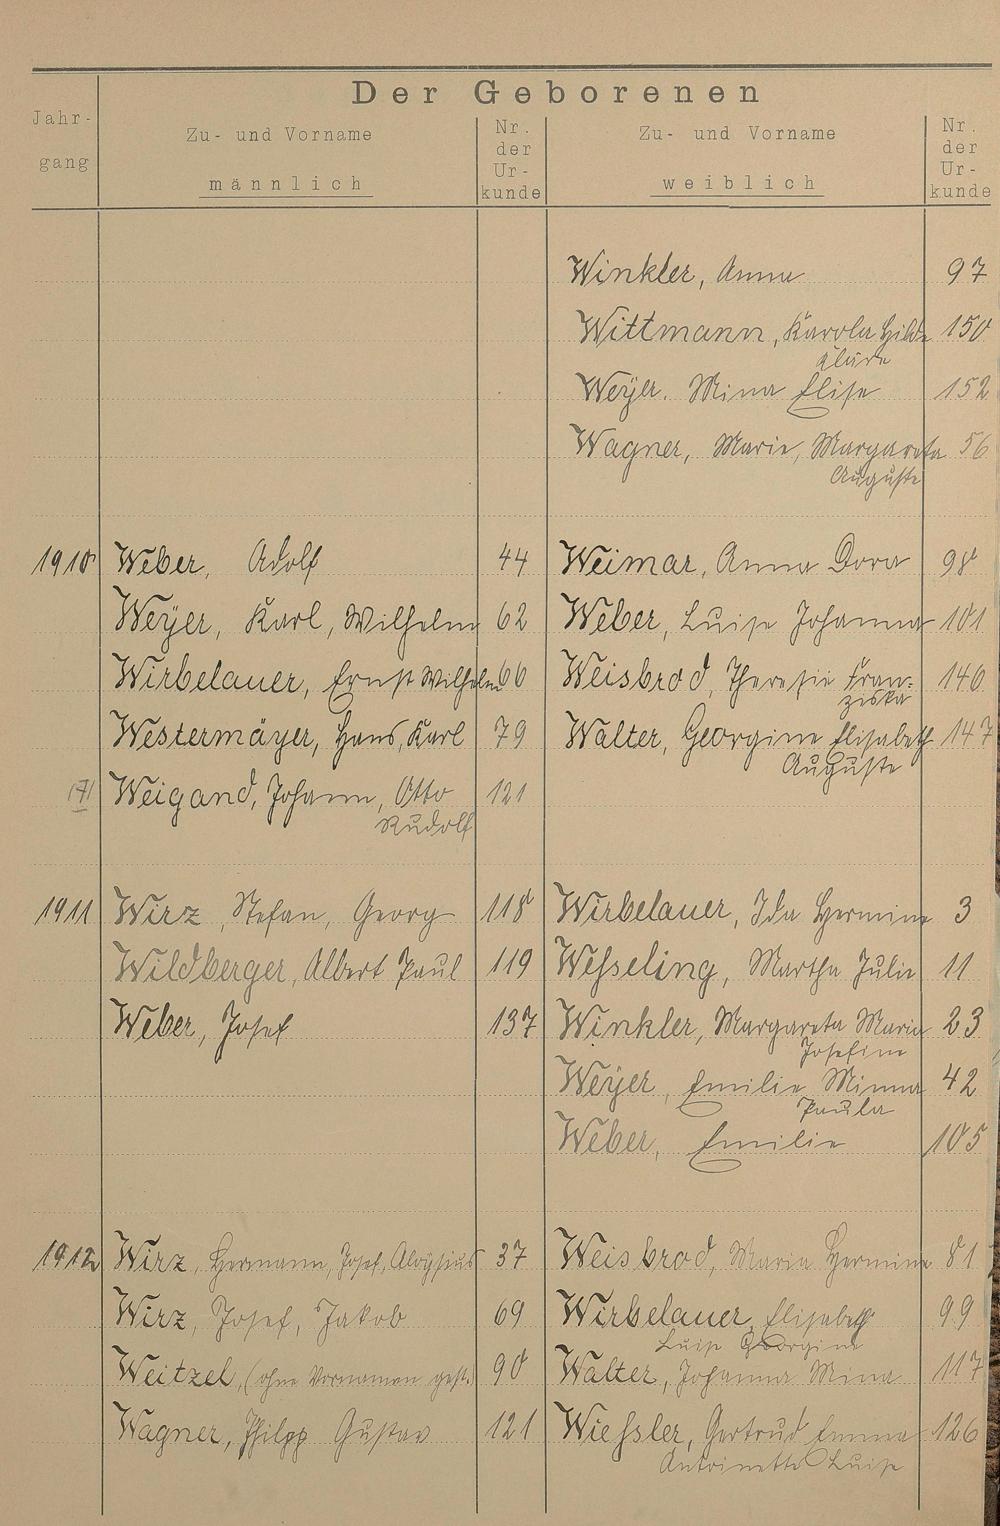 Der Geborenen
Jahr-
gang
Zu- und Vorname
männlich
Nr.
der
Ur-
kunde
Zu- und Vorname
weiblich
Nr.
der
Ur-
kunde
Winkler, Anna 97
Wittmann, Karola Hilde 150
Kläre
Weÿer. Mina Elise 152
Wagner, Marie, Margareta 56
Auguste
1910 Weber, Adolf 44 Weimar, Anna Dora 98
Weÿer, Karl, Wilhelm 62 Weber, Luise Johanna 101
Wirbelauer, Ernst Wilhelm 66 Weisbrod, Theresie Fran-
ziska 146
Westermäyer, Hans, Karl 79 Walter, Georgine Elisabeth 147
Auguste
Weigand, Johann, Otto 121
Rudolf
1911 Wirz, Stefan, Georg 118 Wirbelauer, Ida Hermine 3
Wildberger, Albert Paul 119 Wesseling, Martha Julie 11
Weber, Josef 137 Winkler, Margareta Maria 23
Josefine
Weÿer, Emilie Minna 42
Paula
Weber, Emilie 105
1912 Wirz, Hermann, Josef, Aloÿsius 37 Weisbrod, Maria Hermine 81
Wirz, Josef, Jakob 69 Wirbelauer, Elisabeth 99
Luise Georgine
Weitzel, (ohne Vornamen gest.) 90 Walter, Johanna Mina 117
Wagner, Philpp Gustav 121 Wiessler, Gertrud Emma 126
Antoinette Luise